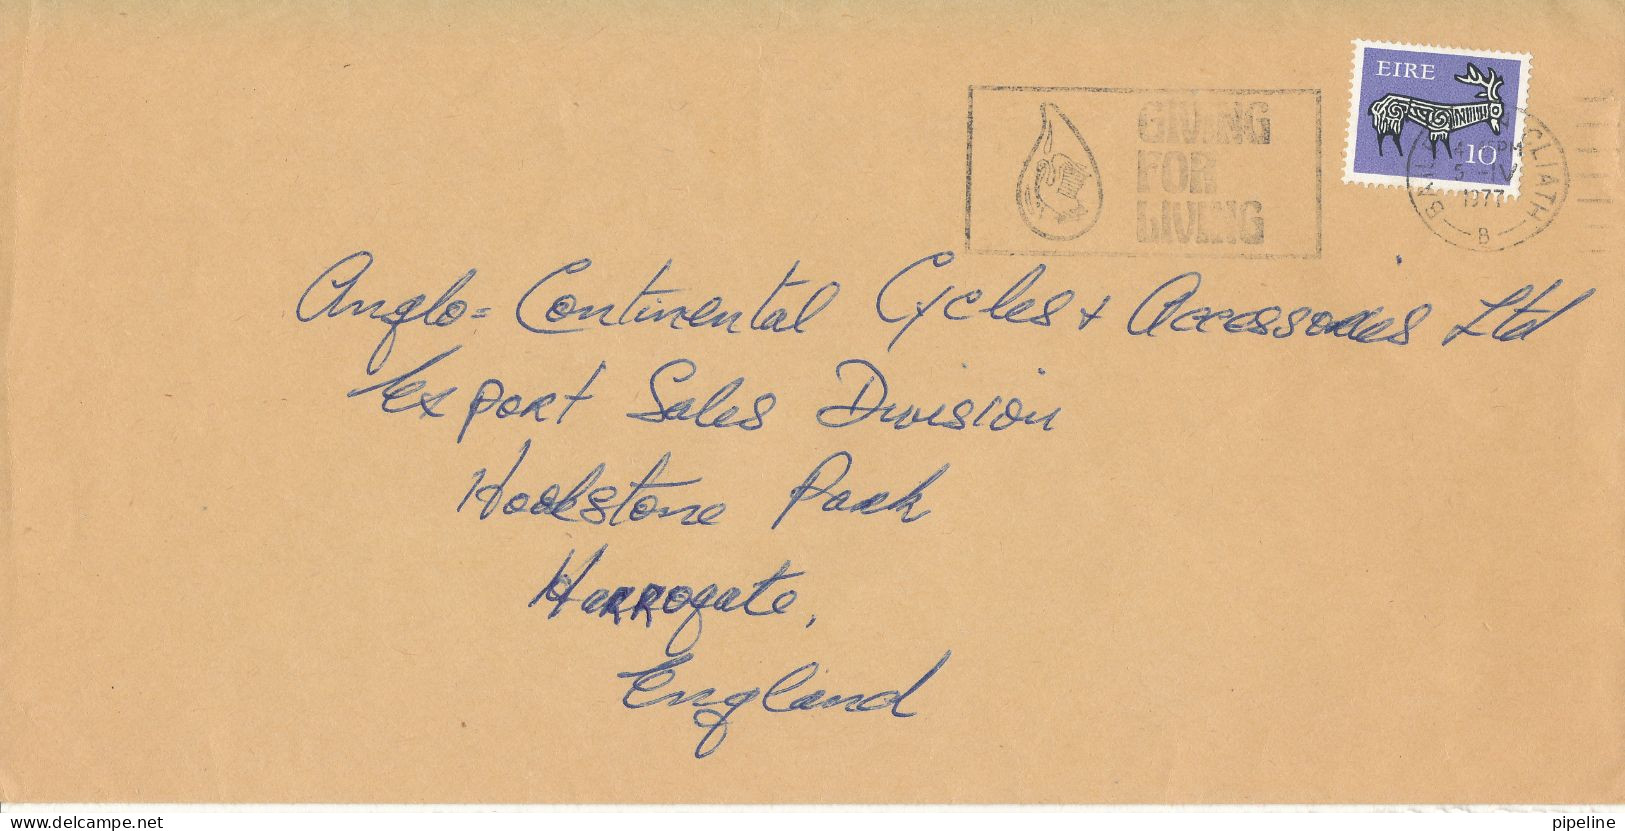 EIRE
10
GIVING
FOR
LIVING
BAILE ÁTHA CLIATH
4 PM
5 -IV
1977
B
Anglo-Continental Cycles + Accessories Ltd
Export Sales Division
Hookstone Park
Harrogate,
England
www.delcampe.net
pipeline